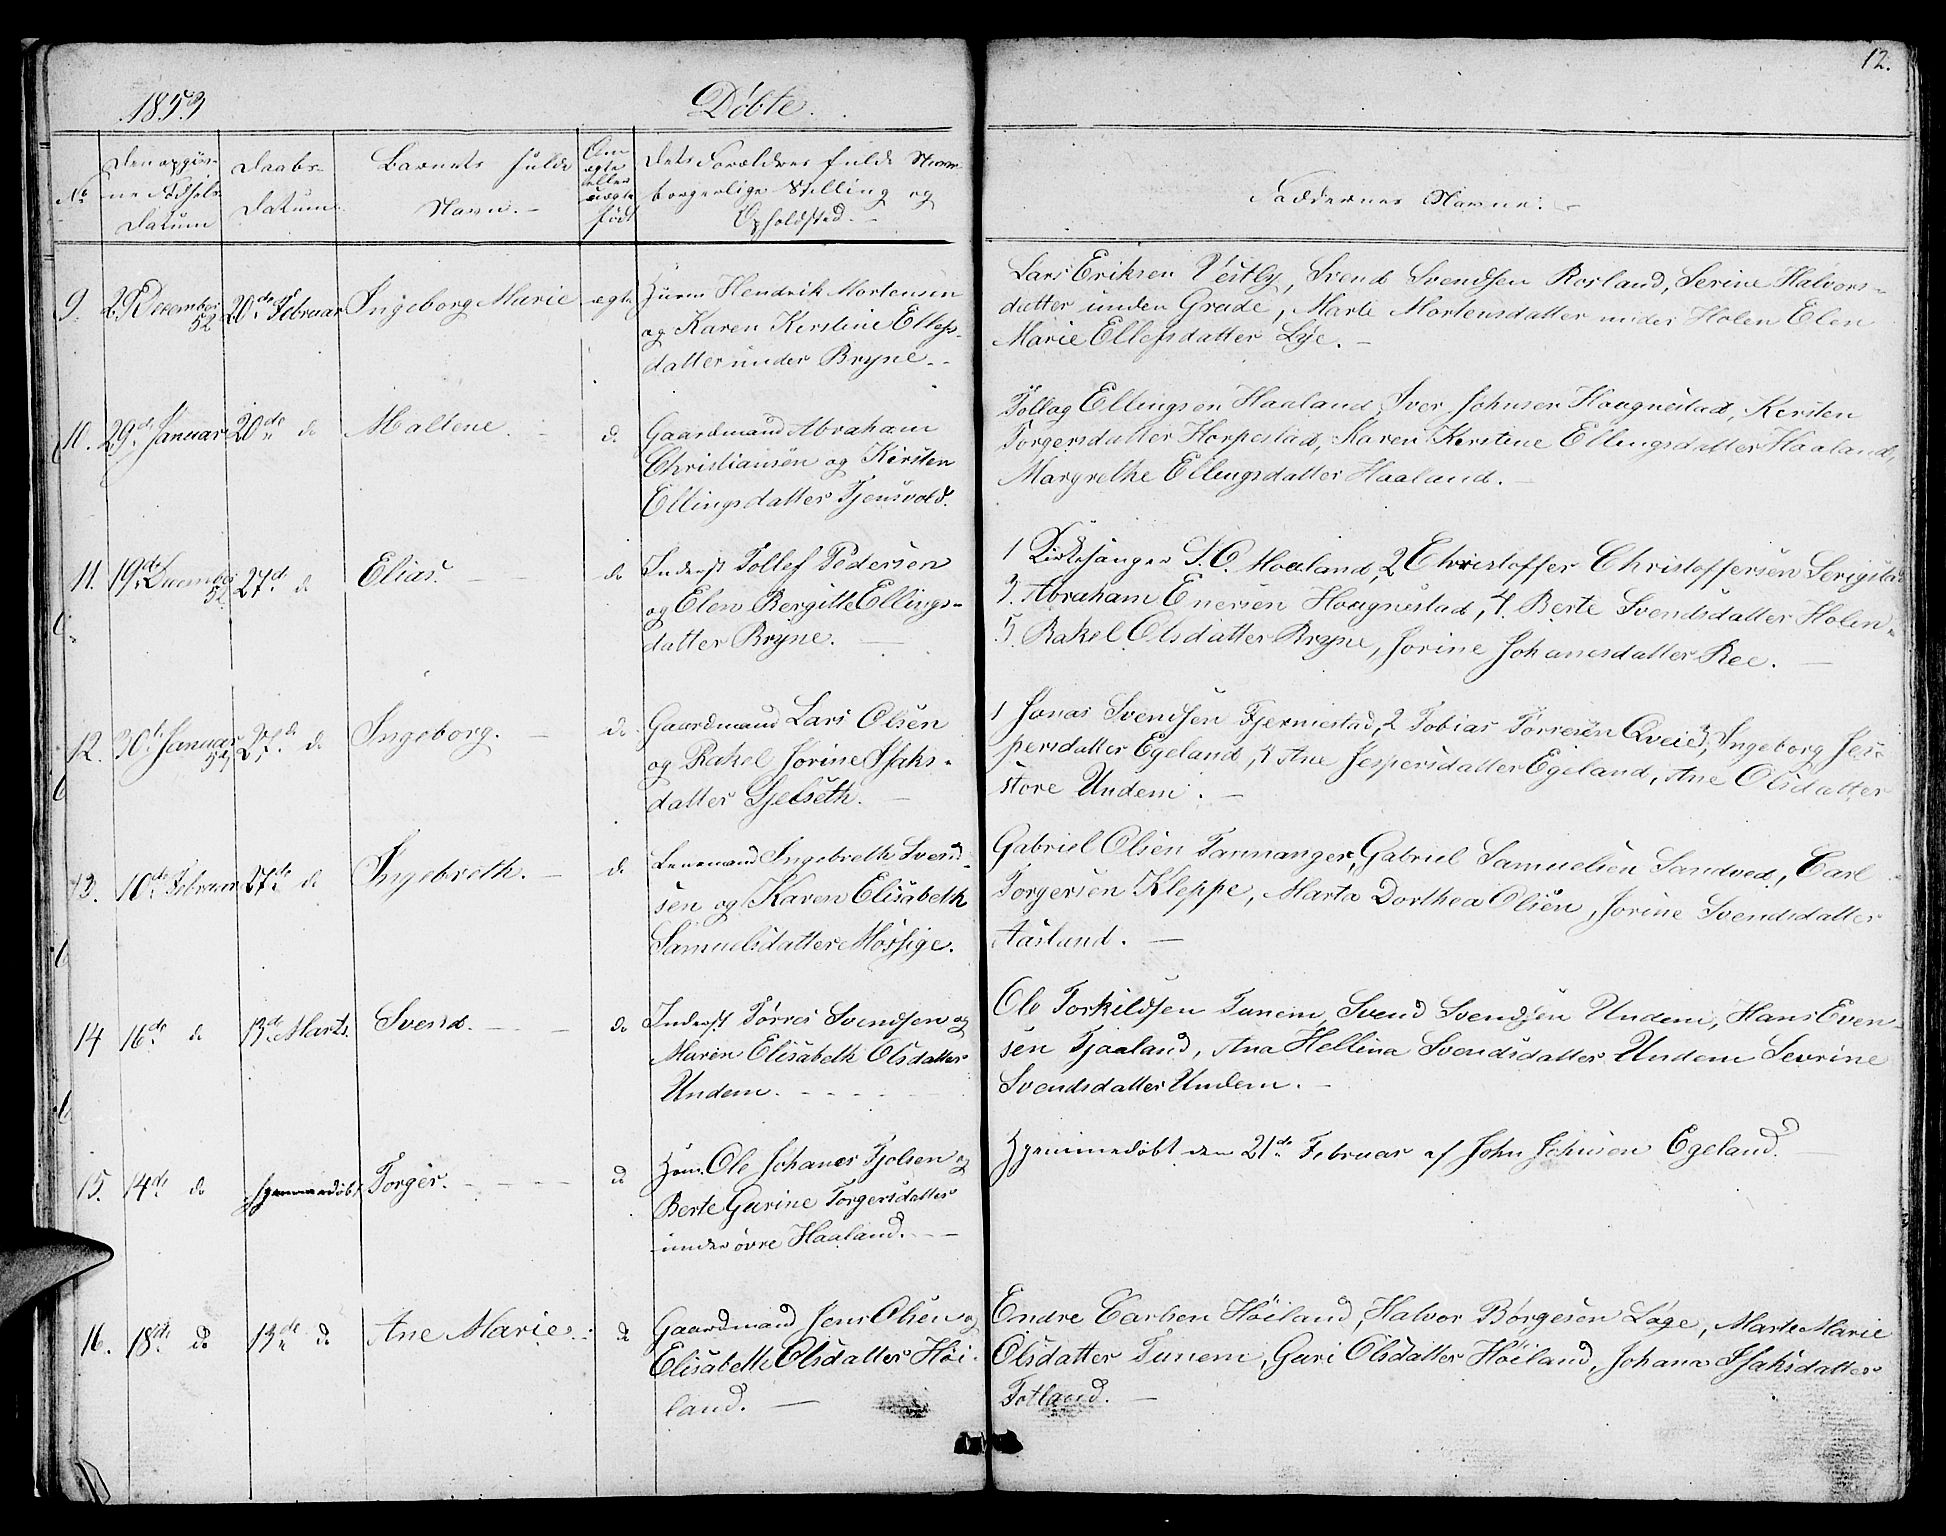 12.
1853
Døbte.
No
Den opgiv-
ne Fødsels
Datum
Daabs-
Datum
Barnets fulde
Navn.-
Om
ægte
eller
uægte
født
Dets Forældres fulde Navn
borgerlige Stilling og
Opholdsted.-
Faddernes Navne.-
9. 29 December 52 20de Februar Ingeborg Marie ægte
Huusm Hendrik Mortensen
og Karen Kirstine Ellefs-
datter under Bryne.-
Lars Eriksen Vestly, Svend Svendsen Rosland, Serine Halvors-
datter under Grude, Marte Mortensdatter under Holen Elen
Marie Ellefsdatter Lye.-
10. 29de Januar 20de do Maltene. do
Gaardmand Abraham
Christiansen og Kirsten
Ellingsdatter Tjensvold.
Tollag Ellingsen Haaland, Iver Johnsen Haugnestad, Kirsten
Torgersdatter Horpestad, Karen Kirstine Ellingsdatter Haaland,
Margrethe Ellingsdatter Haaland.-
11. 19de December 52 27de do Elias. do
Inderst Tollef Pedersen
og Elen Bergitte Ellings-
datter Bryne.-
1 Kirkesanger S. O. Haaland, 2 Christoffer Christoffersen Serigstad
3. Abraham Enersen Haugnestad, 4. Berte Svendsdatter Holen-
5. Rakel Olsdatter Bryne, Jorine Johanesdatter Ree.-
12. 30te Januar 53 27de do Ingeborg. do
Gaardmand Lars Olsen
og Rakel Jorine Isaks-
datter Gjelseth.-
1 Jonas Svendsen Fjermestad, 2 Tobias Torresen Qveie, 3 Ingeborg Jes-
persdatter Egeland, 4 Ane Jespersdatter Egeland, Ane Olsdatter
store Undem.-
13. 10de Februar 27de do Ingebreth. do
Lensmand Ingebreth Svend-
sen og Karen Elisabeth
Samuelsdatter Møssige.
Gabriel Olsen Tannanger, Gabriel Samuelsen Sandved, Carl
Torgersen Kleppe, Marta Dorthea Olsen, Jorine Svendsdatter
Aasland.-
14 16de do 13de Marts. Svend. do
Inderst Tørres Svendsen og
Maren Elisabeth Olsdatter
Undem.
Ole Torkildsen Tunem, Svend Svendsen Undem, Hans Even-
sen Tjaaland, Ana Hellina Svendsdatter Undem Sevrine
Svendsdatter Undem.-
15. 14de do hjemmedøbt Torger. do
Huusm. Ole Johanes Tjolsen og
Berte Gurine Torgersdatter
under øvre Haaland.-
Hjemmedøbt den 21de Februar af John Johnsen Egeland.-
16. 18de do 13de do Ane Marie. do
Gaardmand Jens Olsen og
Elisabeth Olsdatter Høi-
land.-
Endre Carlsen Høiland, Halvor Børgesen Løge, Marte Marie
Olsdatter Tunem, Guri Olsdatter Høiland, Johana Isaksdatter
Fotland.-